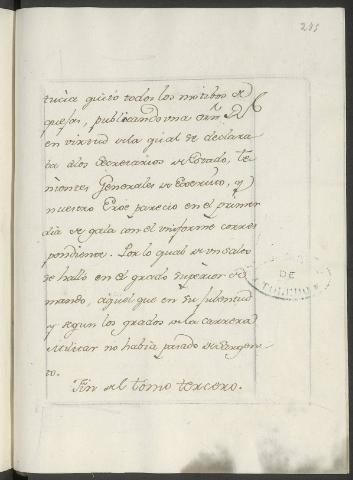 285
tucia quitó todos los motibos de
quejas, publicando vna orn. Rl
en virtud de la qual se declara
ba a los Secretarios de Estado, te
nientes Generales de Exercito, y
nuestro Eroe pareció en el primer
dia de gala con el vniforme corres
pondiente. Por lo qual de un salto
se halló en el grado superior de
mando, aquel que en su Jubentud
y segun los grados de la carrera
Militar no habia pasado de Sargen
to.
Fin del tomo tercero.
DE
TOLEDO